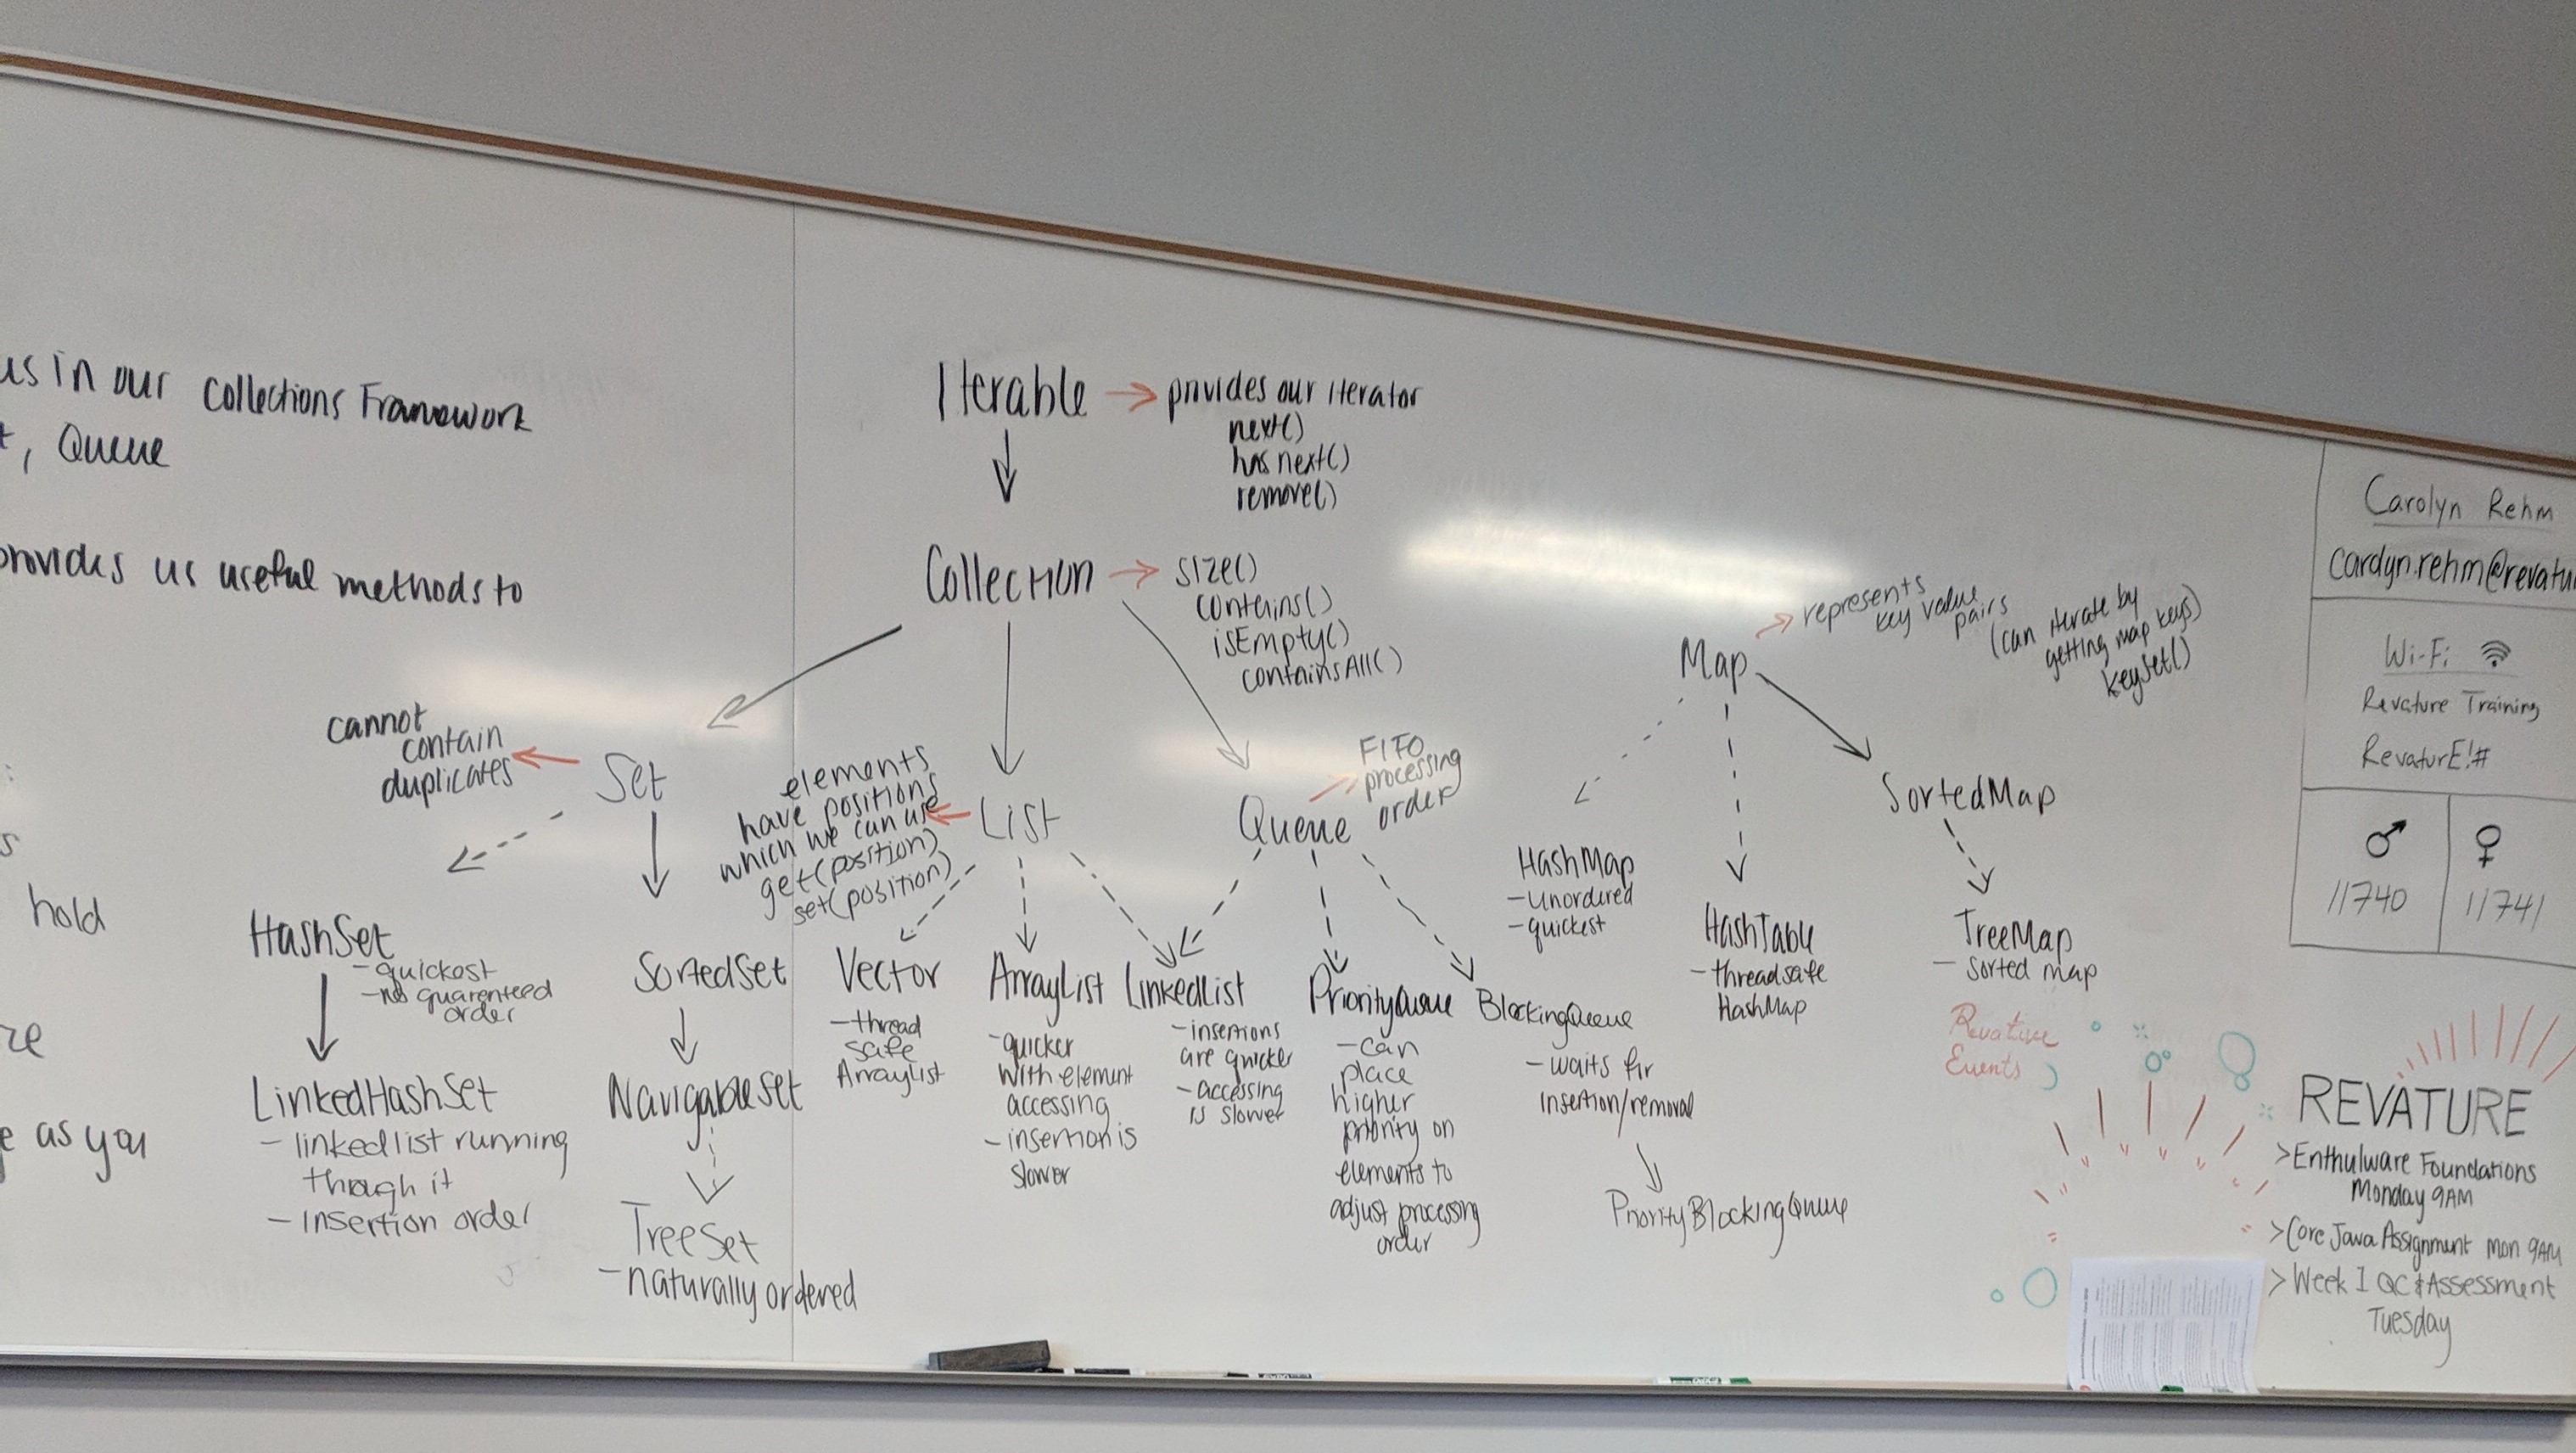 us in our Collections Framework
, Queue
provides us useful methods to
hold
as you
Iterable → provides our iterator
next()
hasnext()
remove()
Collection → size()
contains()
isEmpty()
containsAll()
Set
cannot
contain
duplicates
HashSet
- quickest
- no guarenteed
order
LinkedHashSet
- linkedlist running
through it
- insertion order
SortedSet
NavigableSet
TreeSet
- naturally ordered
List
elements
have positions
which we can use
get(position)
set(position)
Vector
- thread
safe
ArrayList
ArrayList
- quicker
with element
accessing
- insertion is
slower
LinkedList
- insertions
are quicker
- accessing
is slower
Queue
FIFO
processing
order
PriorityQueue
- can
place
higher
priority on
elements to
adjust processing
order
BlockingQueue
- waits for
insertion/removal
PriorityBlockingQueue
Map
represents
key value
pairs
(can iterate by
getting map keys)
keyset()
HashMap
- unordered
- quickest
HashTable
- threadsafe
HashMap
SortedMap
TreeMap
- sorted map
Carolyn Rehm
carolyn.rehm@revatu
Wi-Fi:
Revature Training
RevaturE!#
♂ ♀
11740 11741
Revature
Events
REVATURE
>Enthulware Foundations
Monday 9AM
>Core Java Assignment Mon 9AM
>Week 1 QC & Assessment
Tuesday